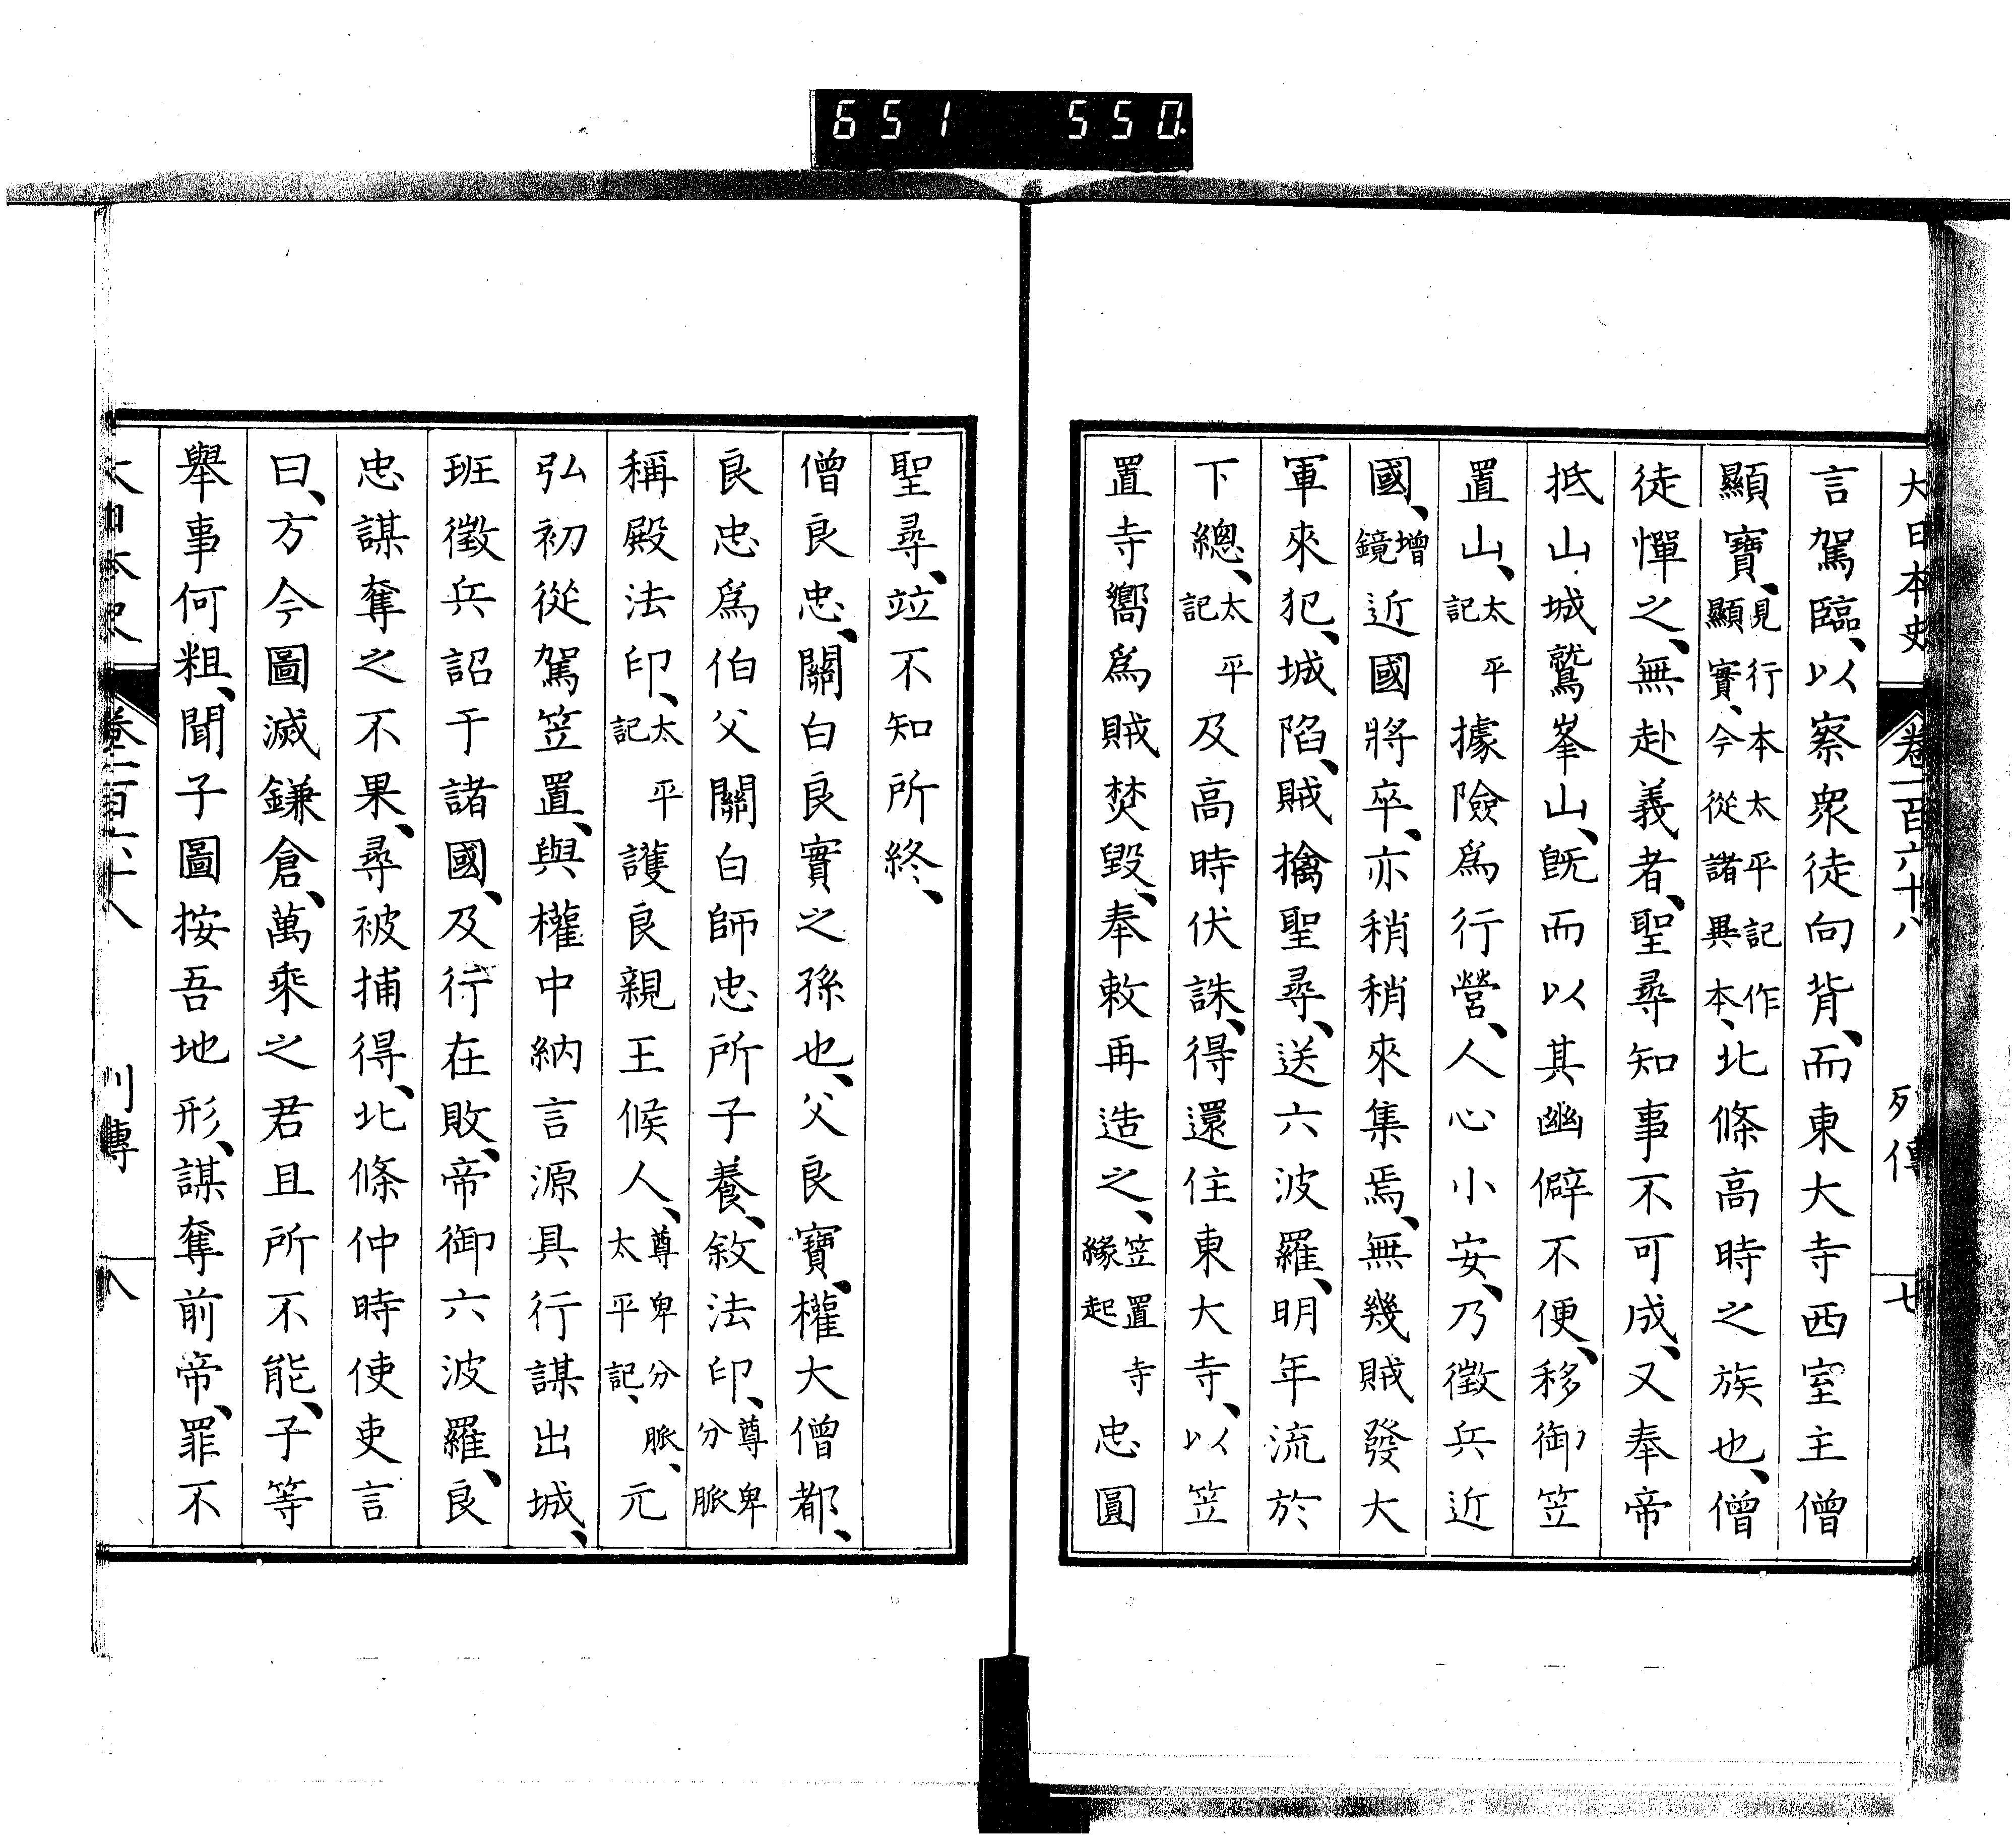 651 550
大日本史 卷一百六十八 列傳 七
言駕臨、以察衆徒向背、而東大寺西室主僧
顯寶、見行本太平記作顯實、今從諸異本、北條高時之族也、僧
徒憚之、無赴義者、聖尋知事不可成、又奉帝
抵山城鷲峯山、既而以其幽僻不便、移御笠
置山、太平記據險爲行營、人心小安、乃徵兵近
國、增鏡近國將卒、亦稍稍來集焉、無幾賊發大
軍來犯、城陷、賊擒聖尋、送六波羅、明年流於
下總、太平記及高時伏誅、得還住東大寺、以笠
置寺嚮爲賊焚毀、奉敕再造之、笠置寺緣起忠圓
聖尋、竝不知所終、
僧良忠、關白良實之孫也、父良寶、權大僧都、
良忠爲伯父關白師忠所子養、敘法印、尊卑分脈
稱殿法印、太平記護良親王候人、尊卑分脈、太平記、元
弘初從駕笠置、與權中納言源具行謀出城、
班徵兵詔于諸國、及行在敗、帝御六波羅、良
忠謀奪之不果、尋被捕得、北條仲時使吏言
曰、方今圖滅鎌倉、萬乘之君且所不能、子等
舉事何粗、聞子圖按吾地形、謀奪前帝、罪不
大日本史 卷一百六十八 列傳 八